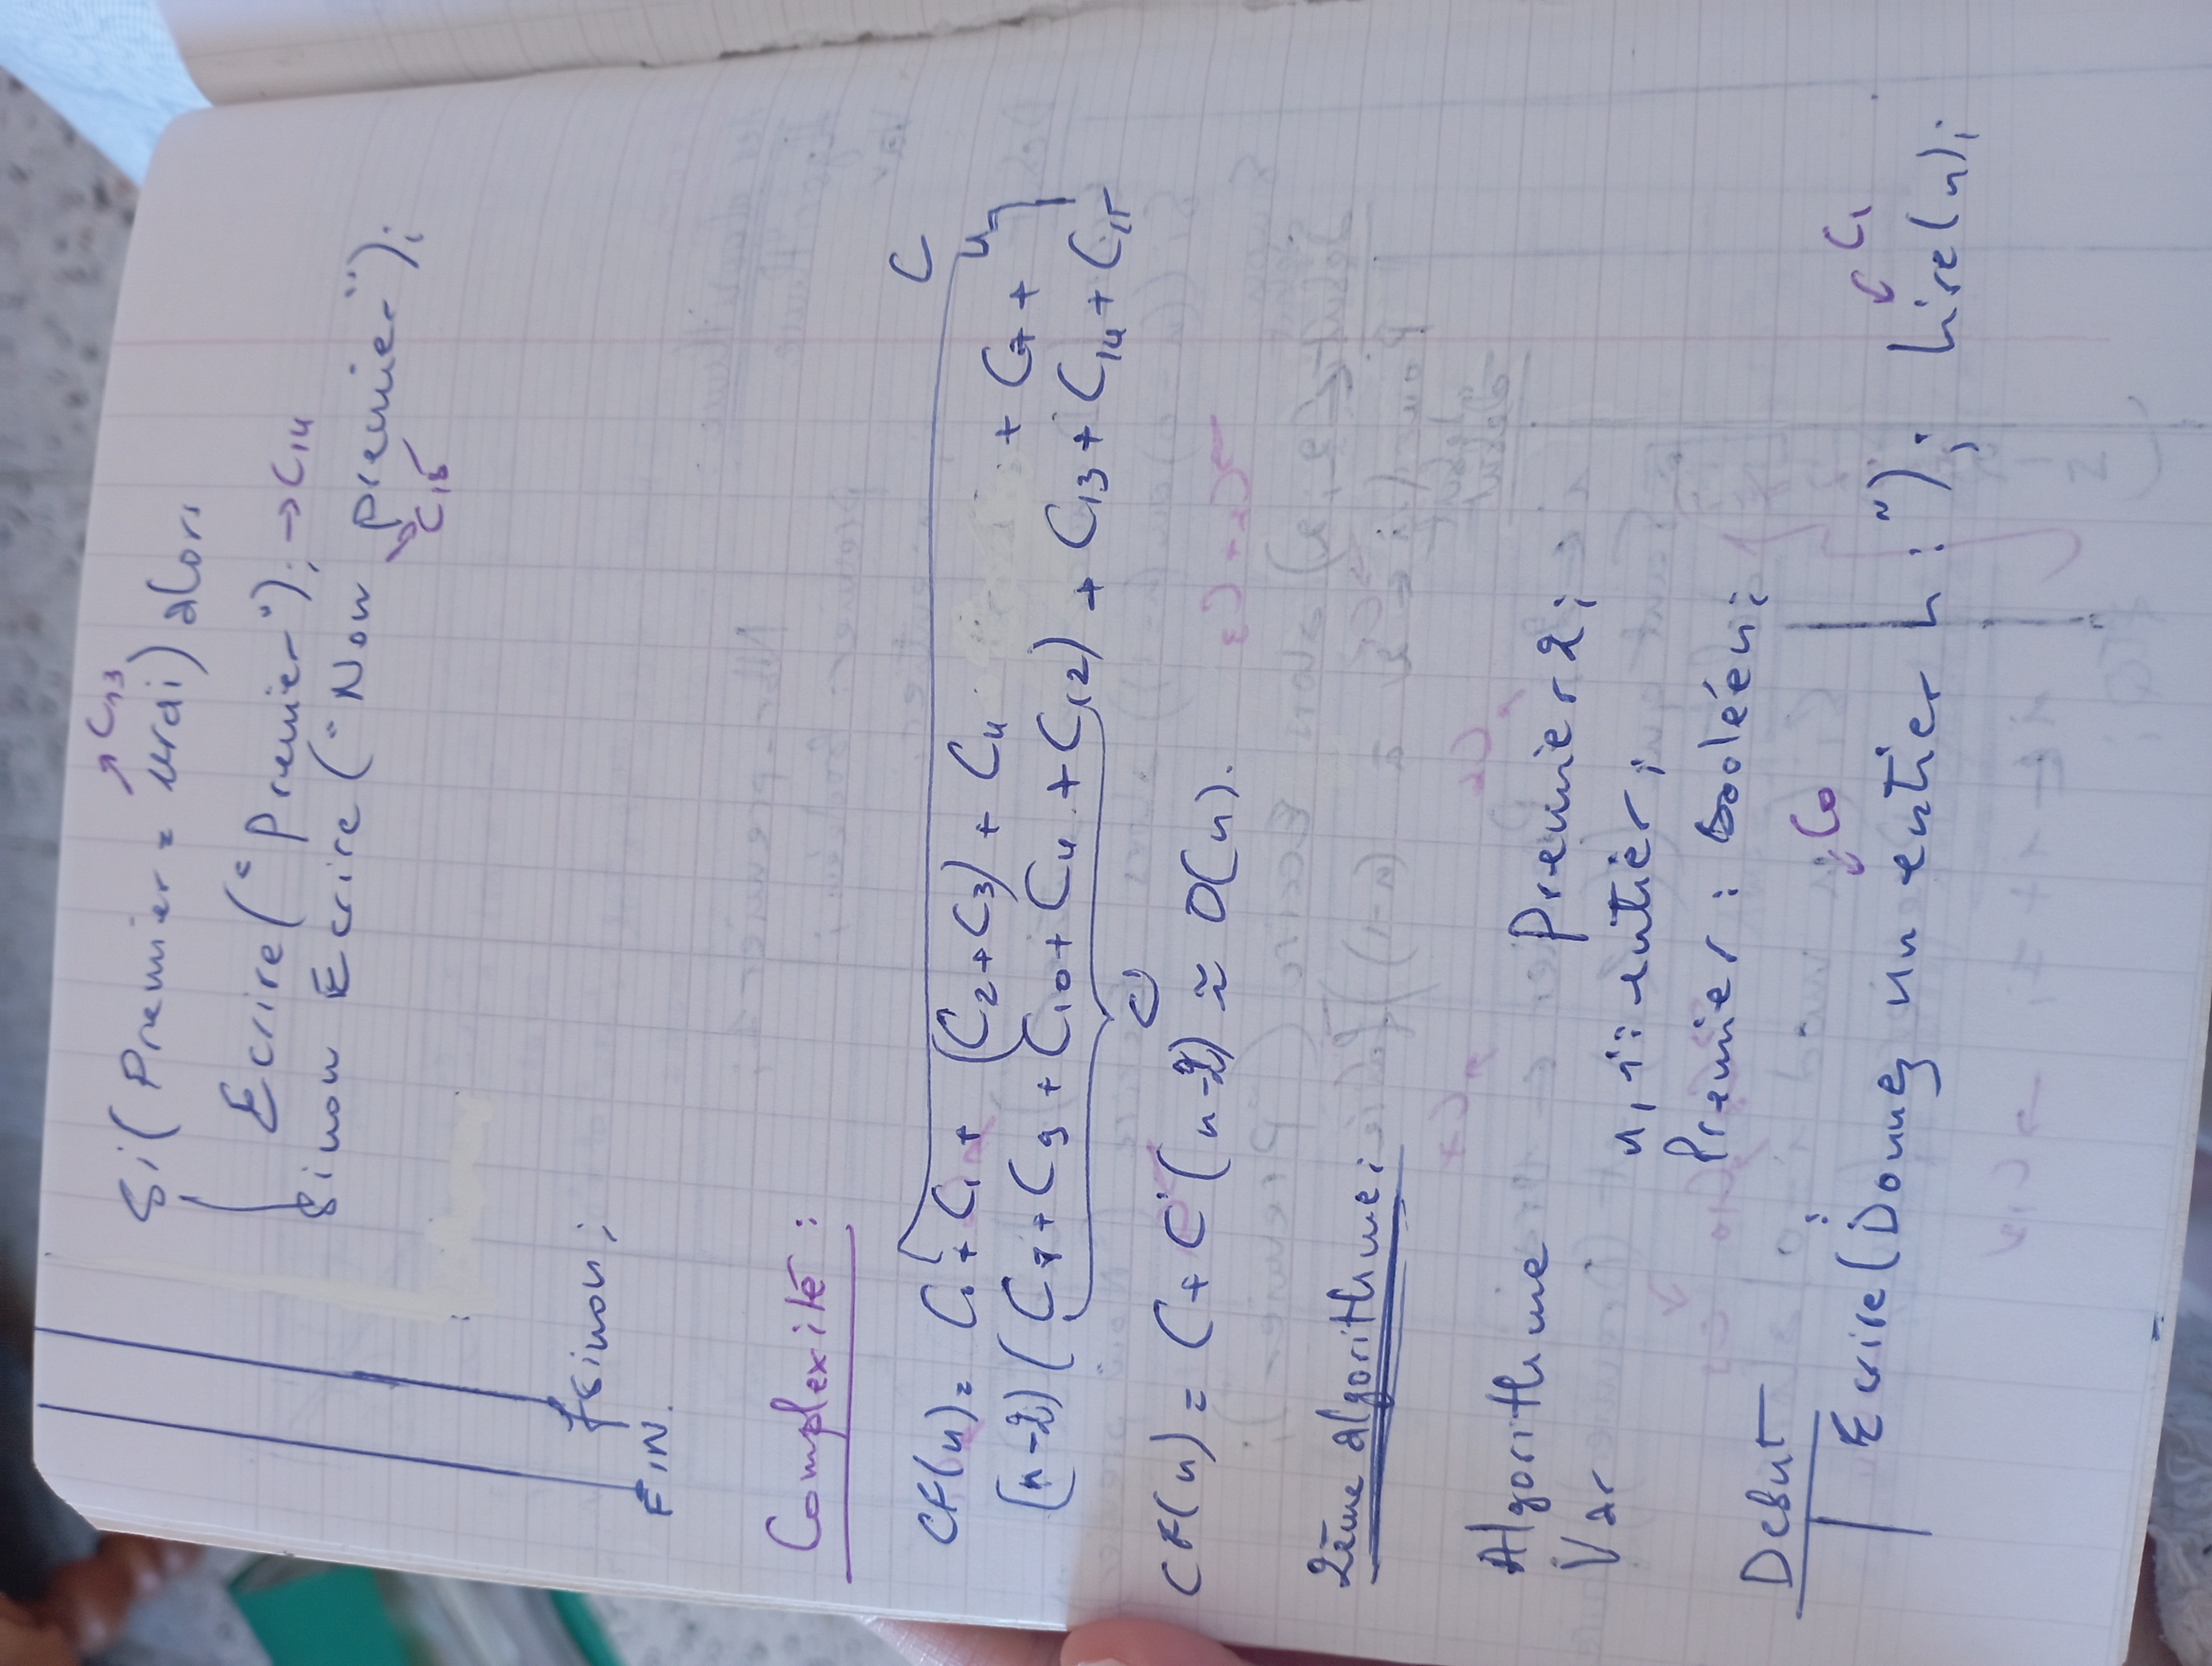 → C13
Si( Premier = vrai) alors
Ecrire("Premier"); → C14
Sinon Ecrire("Non premier");
→ C15
fsinon;
FIN.
Complexité :
C
CF(n) = C0 + C1 + (C2 + C3) + C4 + C7 +
(n-2)(C8 + C9 + C10 + C11 + C12) + C13 + C14 + C15
C'
CF(n) = C + C'(n-2) ≈ O(n).
2ème algorithme:
Algorithme Premier2;
Var
n, i: entier;
Premier : booléen;
Debut
C0 C1
Ecrire(Donnez un entier n : "); Lire(n);